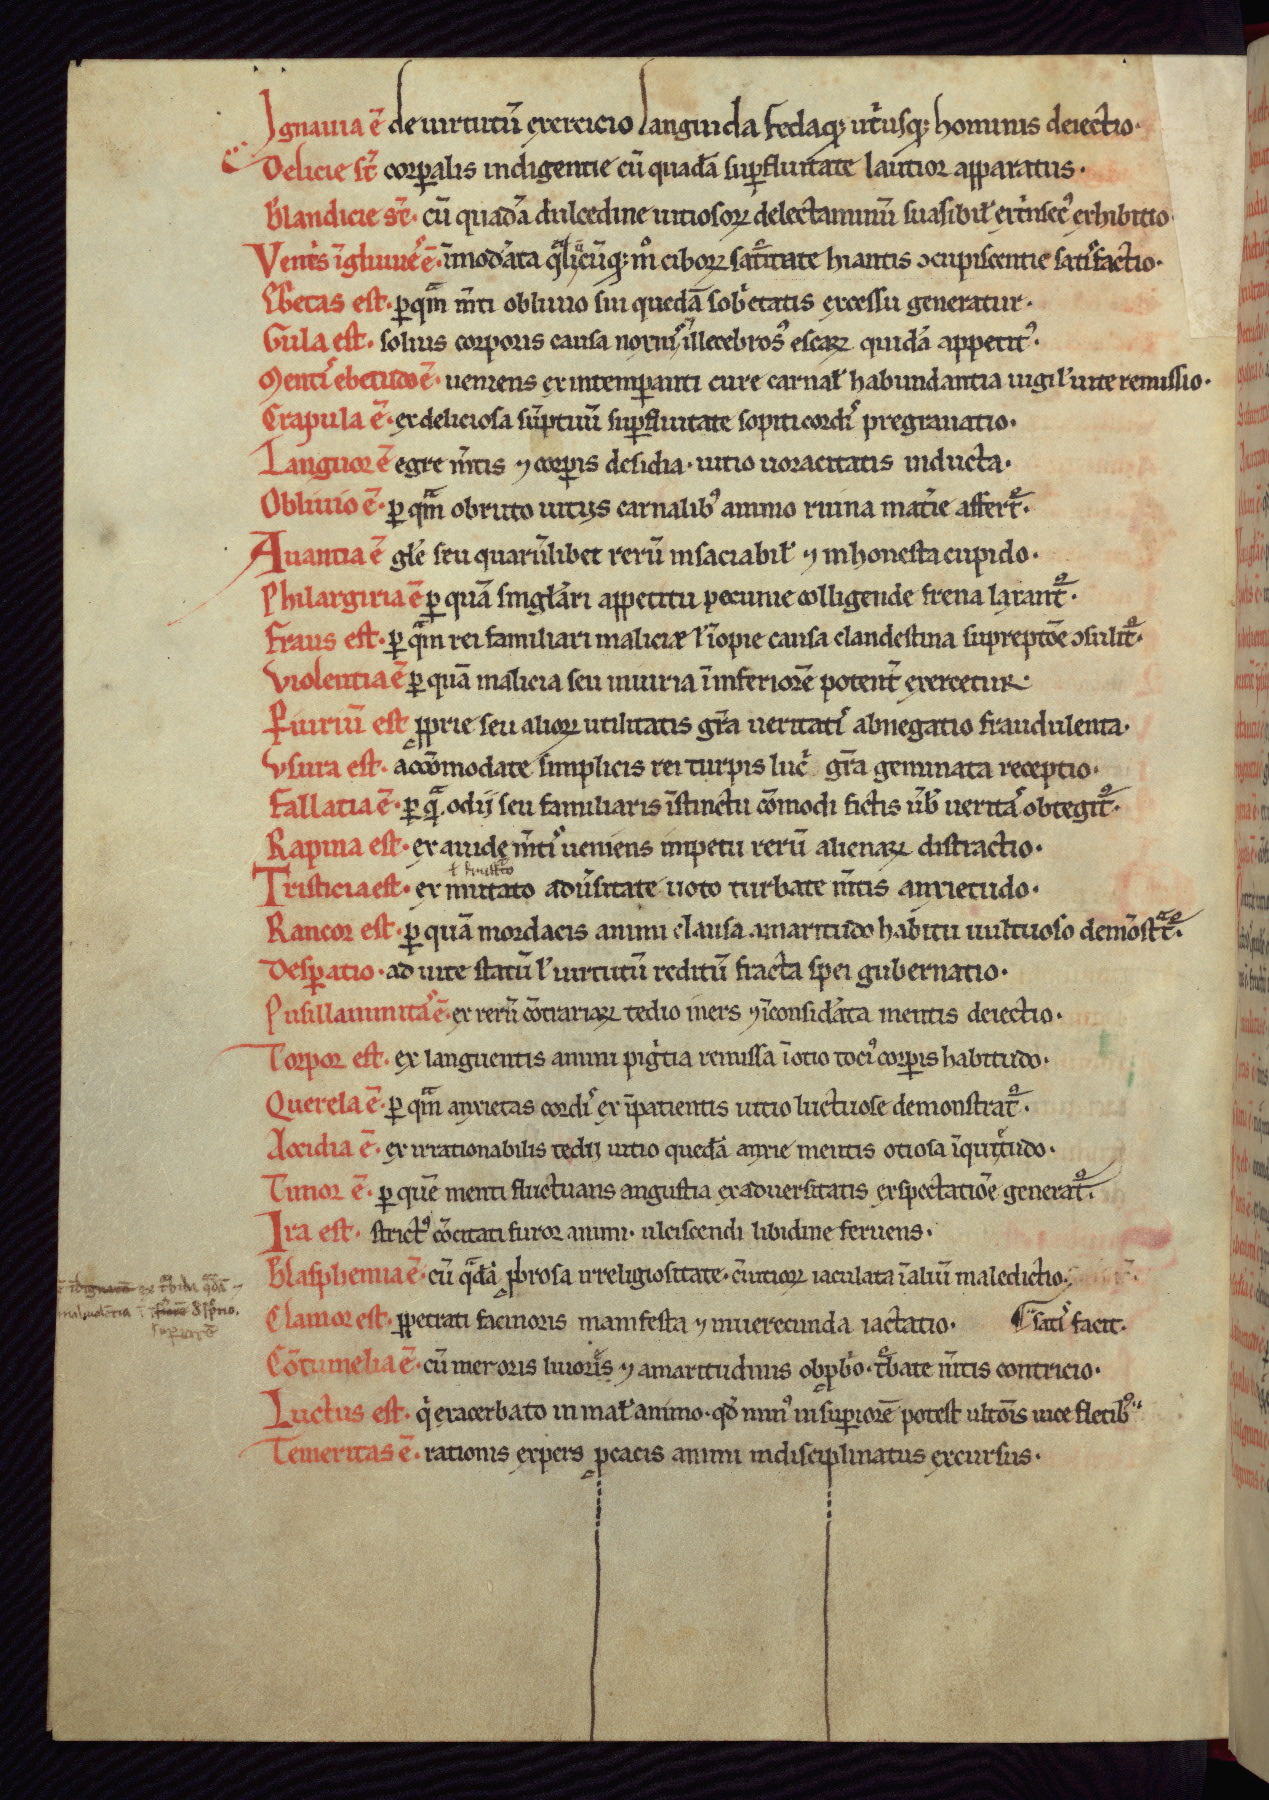 Ignauia ē de uirtutū exercicio languida fedaq; ut̾usq; hominis deiectio.
Delicie st̄ corꝑalis indigentie cū quadā suꝑfluitate lautior apparatus.
Blandicie st̄. cū quadā dulcedine uitiosoꝝ delectaminū suasibil̾ ext̾nsec᾿ exhibitio
Vent̾s īgluuies ē. īmoderata qͣlicūq; m̊ ciboꝝ saturitate hiantis ɔcupiscentie satisfactio.
Ebetas est. ꝑ qͣm m̄ti obliuio sui quedā sob̾etatis excessu generatur.
Gula est. solius corporis causa noxius illecebros᾿ escaꝝ quidā appetit᾿.
Mentis ebetudo ē. ueniens ex intemꝑanti cure carnal̾ habundantia uigil̾ uite remissio.
Crapula ē. ex deliciosa sūptuū suꝑfluitate sopiti cordis pregrauatio.
Languor ē egre m̄tis ⁊ corꝑis desidia. uitio uoracitatis inducta.
Obliuio ē. ꝑ qͣm obruto uitijs carnalib᾿ animo ruina mat̾ie affert᷑.
Auaritia ē gl̄e seu quarūlibet rerū insaciabil̾ ⁊ inhonesta cupido.
Philargiria ē ꝑ quā singl̄ari appetitu pecunie colligende frena laxant᷑.
Fraus est. ꝑ qͣm rei familiari malicie l̾ īopie causa clandestina supreptōe ɔsulit᷑.
Violentia ē ꝑ quā malicia seu iniuria ī inferiorē potent̾ exercetur.
Periuriū est ꝓprie seu alioꝝ utilitatis gr̄a ueritatis abnegatio fraudulenta.
Vsura est. accōmodate simplicis rei turpis luc̾ gr̄a geminata receptio.
Fallatia ē. ꝑ qͣ odij seu familiaris īstinctu cōmodi fictis ūb̾ ueritas obtegit᷑.
Rapina est. ex auide m̄tis ueniens impetu rerū alienaꝝ distractio.
Tristicia est. ex mutato adūsitate uoto turbate m̄tis anxietudo.
Rancor est. ꝑ quā mordacis animi clausa amaritudo habitu uultuoso demōstͣt᷑.
Desꝑatio. ad uite statū l̾ uirtutū reditū fracta spei gubernatio.
Pusillanimitas ē. ex rerū cōtrariaꝝ tedio iners ⁊ īconsid̾ata mentis deiectio.
Torpor est. ex languentis animi pig̾tia remissa ī otio toci᾿ corꝑis habitudo.
Querela ē. ꝑ qͣm anxietas cordis ex īpatientis uitio luctuose demonstrat᷑.
Accidia ē. ex irrationabilis tedij uitio quedā anxie mentis otiosa īquietudo.
Timor ē. ꝑ quē menti fluctuans angustia ex aduersitatis exspectatiōe generat᷑.
Ira est. strict᾿ cōcitati furor animi. ulciscendi libidine feruens.
Blasphemia ē. cū qͣdā ꝓbrosa irreligiositate. cōuitioꝝ iaculata ī aliū maledictio.
Clamor est. ꝑpetrati facinoris manifesta ⁊ inuerecunda iactatio. satisfacit.
Cōtumelia ē. cū meroris liuoris ⁊ amaritudinis obꝓb̾o. t᷑bate m̄tis contricio.
Luctus est. qͥ exacerbato in mal̾ animo. qd̄ min᾿ in suꝑiorē potest ultōis uice fletib᾿
Temeritas ē. rationis expers ꝓcacis animi indisciplinatus excursus.